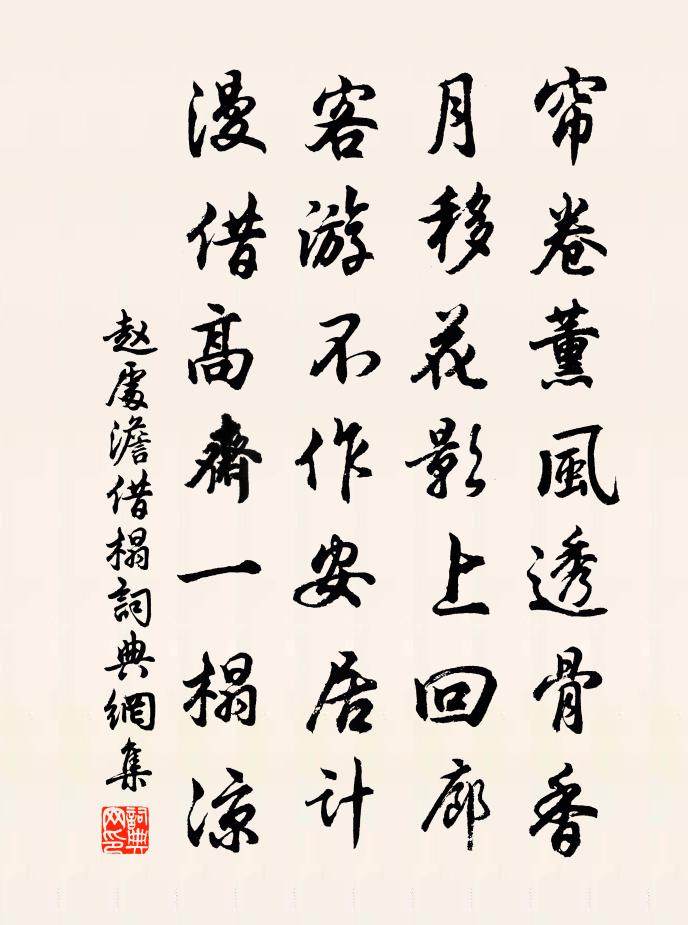 帘卷薰風透骨香
月移花影上回廊
客游不作安居計
漫借高齋一榻凉
赵處澹借榻詞典網集
詞典网印